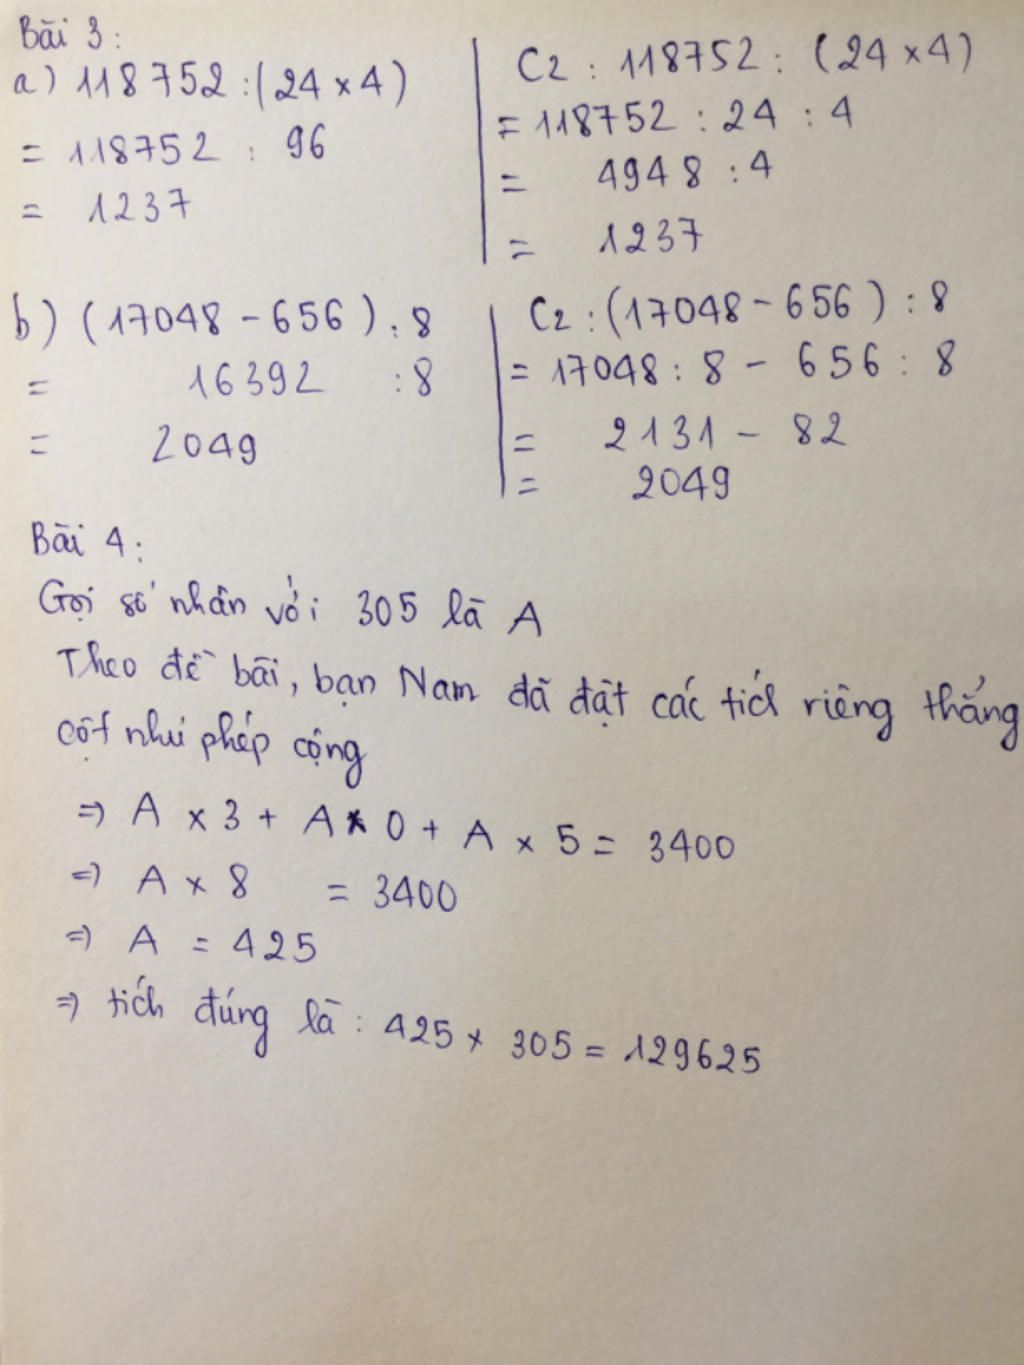 Bài 3:
a) 118752 : (24 x 4)
= 118752 : 96
= 1237
C2 : 118752 : (24 x 4)
= 118752 : 24 : 4
= 4948 : 4
= 1237
b) (17048 - 656) : 8
= 16392 : 8
= 2049
C2 : (17048 - 656) : 8
= 17048 : 8 - 656 : 8
= 2131 - 82
= 2049
Bài 4:
Gọi số nhân với 305 là A
Theo đề bài, bạn Nam đã đặt các tích riêng thẳng
cột như phép cộng
=> A x 3 + A x 0 + A x 5 = 3400
=> A x 8 = 3400
=> A = 425
=> tích đúng là : 425 x 305 = 129625